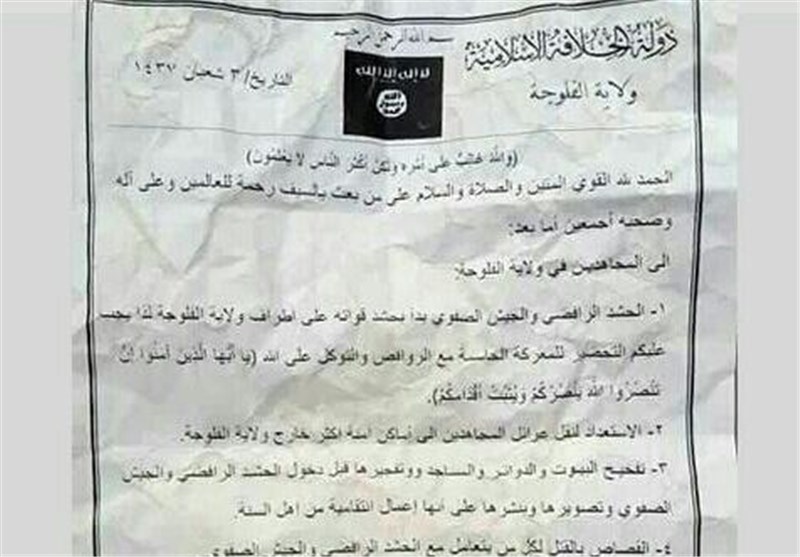 بسم الله الرحمن الرحيم
دولة الخلافة الاسلامية
ولاية الفلوجة
التاريخ/ ٣ شعبان ١٤٣٧
لا اله الا الله
الله
رسول
محمد
(والله غالبٌ على أمره ولكن أكثر الناس لا يعلمون)
الحمد لله القوي المتين والصلاة والسلام على من بعث بالسيف رحمة للعالمين وعلى آله
وصحبه أجمعين أما بعد:
الى المجاهدين في ولاية الفلوجة:
١- الحشد الرافضي والجيش الصفوي بدأ بحشد قواته على اطراف ولاية الفلوجة لذا يجب
عليكم التحضير للمعركة الحاسة مع الروافض والتوكل على الله (يا أيُّها الَّذين آمَنُوا إِنْ
تَنْصُرُوا اللهَ يَنْصُرْكُمْ وَيُثَبِّتْ أَقْدَامَكُمْ).
٢- الاستعداد لنقل عوائل المجاهدين الى أماكن امنة اكثر خارج ولاية الفلوجة.
٣- تفخيخ البيوت والدوائر والمساجد وتفجيرها قبل دخول الحشد الرافضي والجيش
الصفوي وتصويرها ونشرها على أنها إعمال انتقامية من اهل السنة.
٤- القصاص بالقتل لكل من يتعامل مع الحشد الرافضي والجيش الصفوي